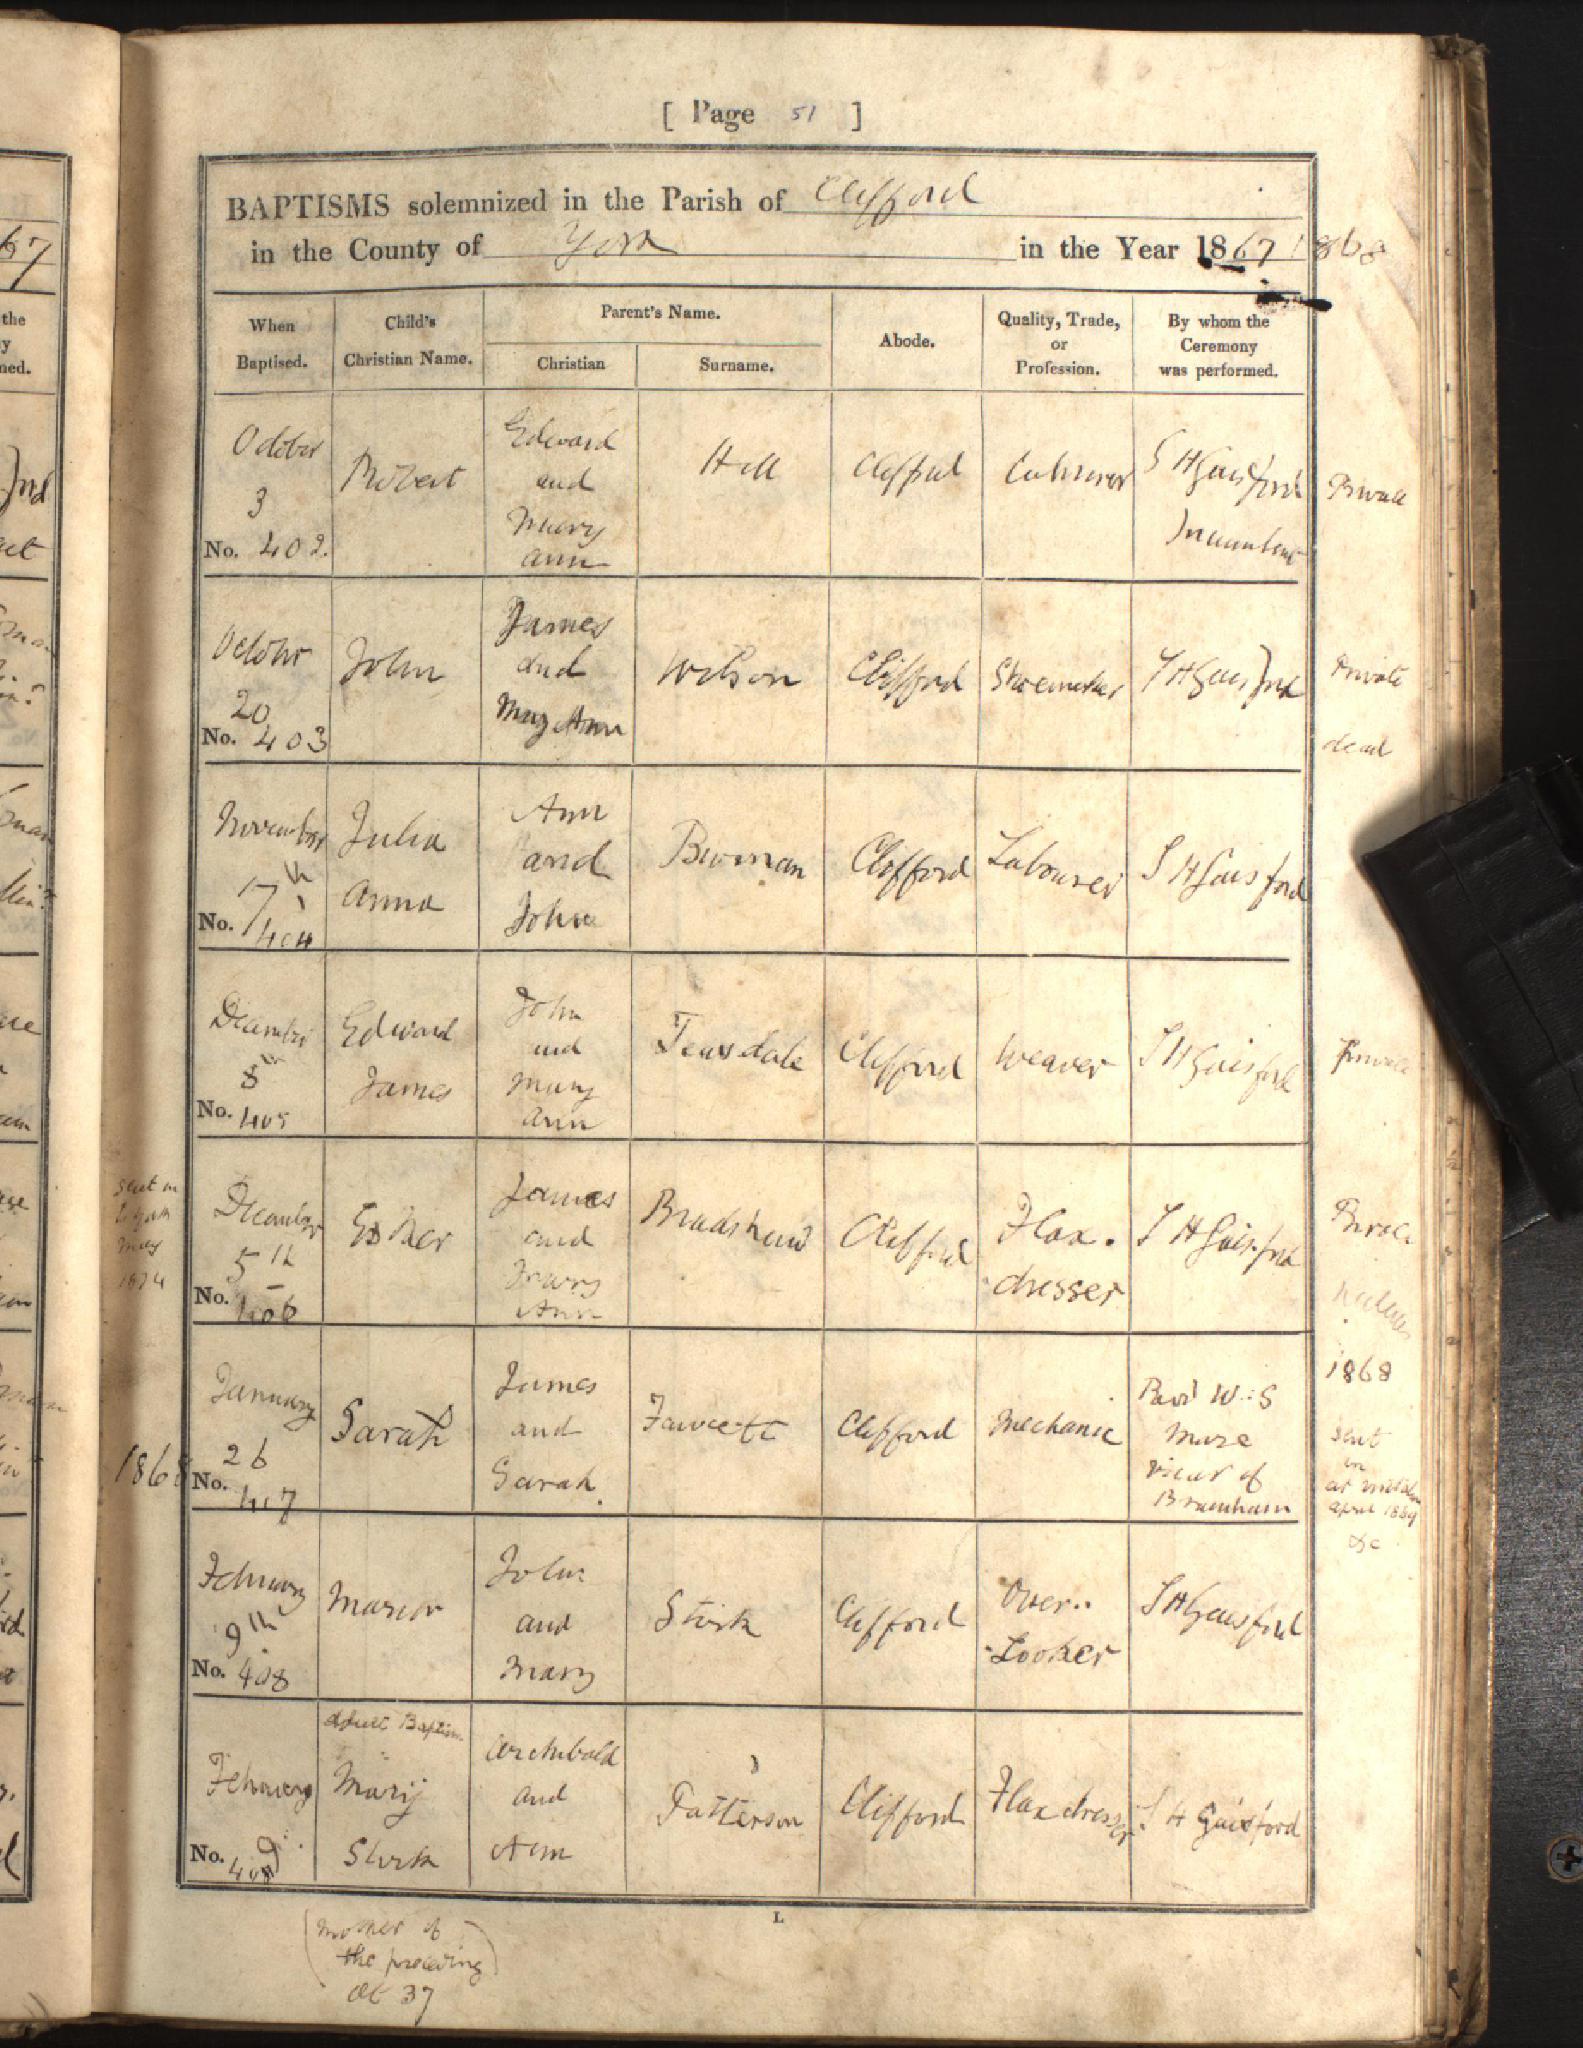 [ Page 51 ]
BAPTISMS solemnized in the Parish of Clifford
in the County of York in the Year 1867 1868
When Baptised.
Child's Christian Name.
Parent's Name.
Christian
Surname.
Abode.
Quality, Trade, or Profession.
By whom the Ceremony was performed.
October
3
No. 402.
Robert
Edward
and
Mary
Ann
Hill
Clifford
Labourer
S H Gaisford
Incumbent
Private
October
20
No. 403
John
James
and
Mary Ann
Wilson
Clifford
Shoemaker
S H Gaisford
Private
dead
November
17th
No. 404
Julia
Anna
Ann
and
John
Bowman
Clifford
Labourer
S H Gaisford
December
8th
No. 405
Edward
James
John
and
Mary
Ann
Teasdale
Clifford
Weaver
S H Gaisford
Private
sent in
May
1874
December
5th
No. 406
Esther
James
and
Mary
Ann
Bradshaw
Clifford
Flax.
dresser
S H Gaisford
1868
January
26
No. 407
Sarah
James
and
Sarah.
Fawcett
Clifford
Mechanic
W. S
Vicar of
Bramham
1868
sent
in
at
April 1869
&c
February
9th
No. 408
Marion
John
and
Mary
Stirk
Clifford
Over..
Looker
S H Gaisford
February
9
No. 409
Adult Baptism
Mary
Stirk
Archibald
and
Ann
Patterson
Clifford
Flaxdresser
S H Gaisford
L
(mother of
the preceding)
at 37